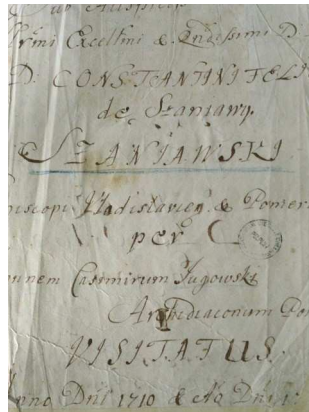 Sub Auspicijs
Excellmi &
D: CONSTANTINI FELI
de Szaniawy
SZANIAWSKI
piscopi Wladislavien. & Pomer
per
nnem Casimirum Jugowski
Archidiaconum Po
VISITATUS
nno Dnī 1710 &